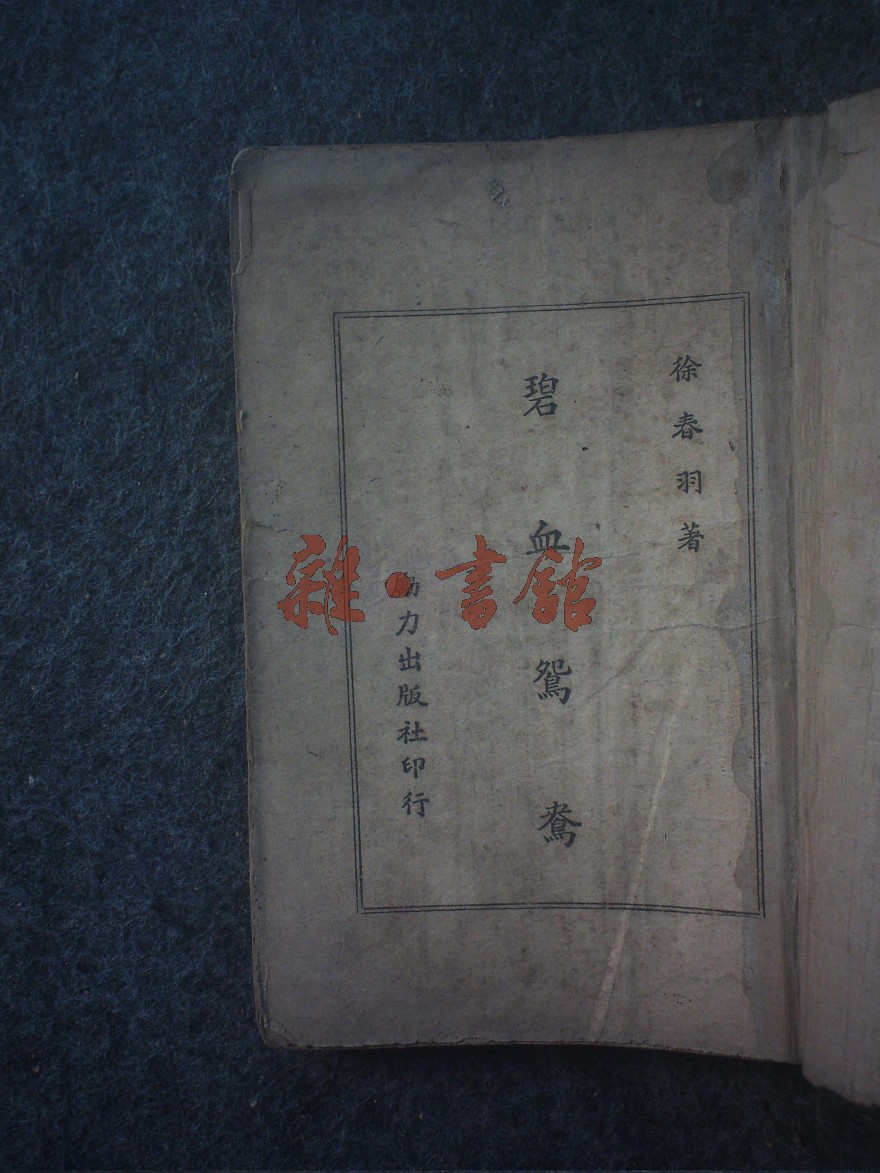 徐春羽著
碧血鴛鴦
力出版社印行
雜·書館